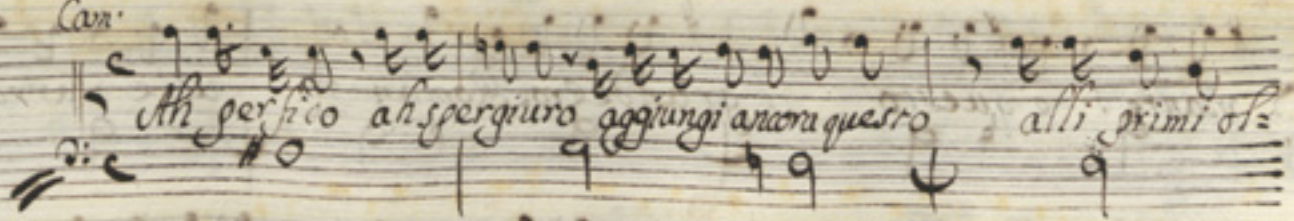 Cam.
Ah perfido ah spergiuro aggiungi ancora questo alli primi ol=